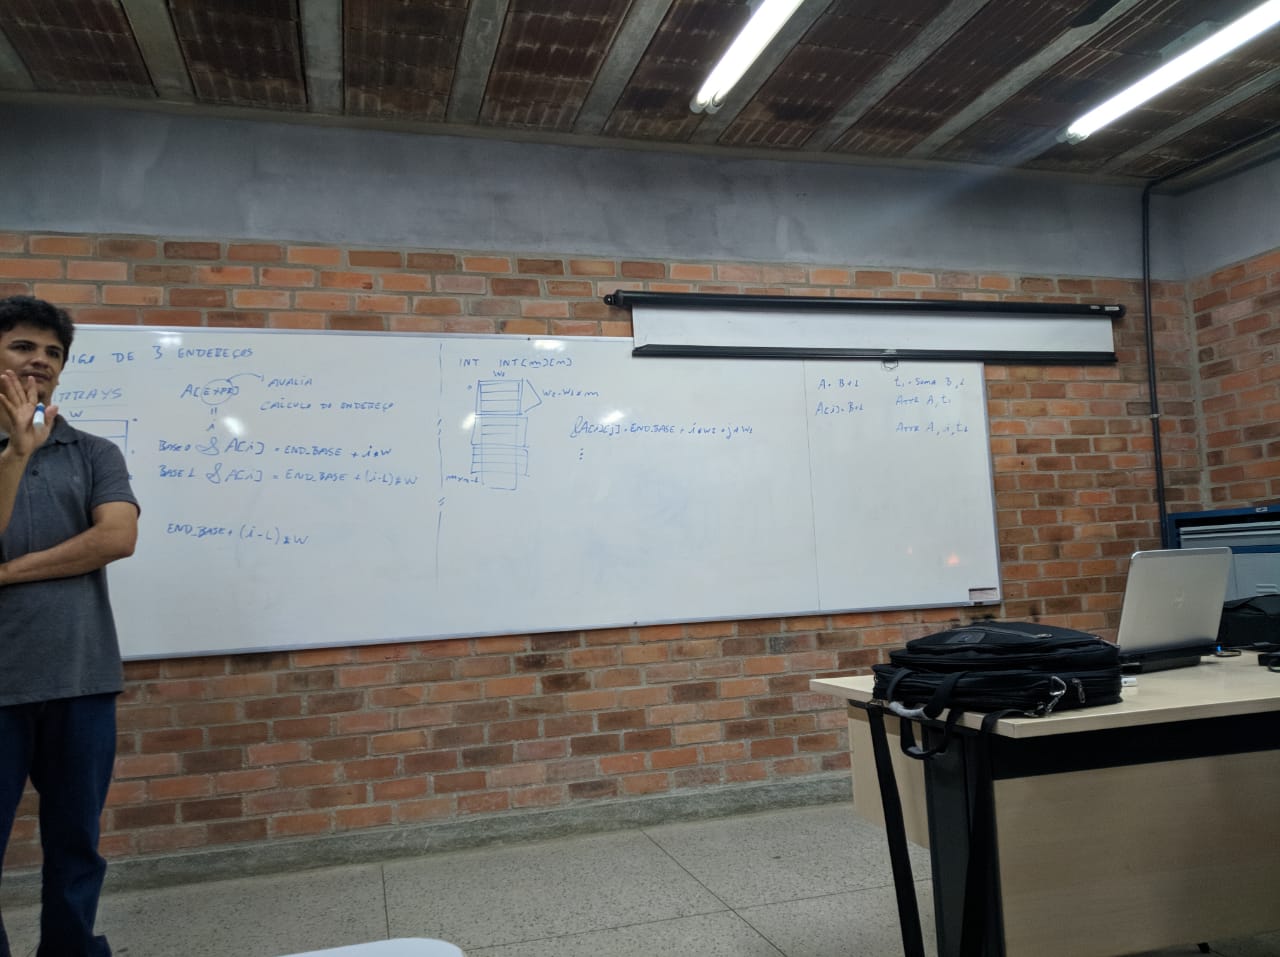 IGO DE 3 ENDEREÇOS
ARRAYS
W
A[EXPR] AVALIA
CÁLCULO DO ENDEREÇO
i
BASE 0 & A[i] = END_BASE + i*W
BASE 1 & A[i] = END_BASE + (i-L)*W
END_BASE + (i-L)*W
INT INT[m][m]
W1
0
W2=W1*m
&A[i][j] = END_BASE + i*W2 + j*W1
⋮
A = B+1 t1 = SOMA B,1
ATTR A, t1
A[i] = B+1
ATTR A, i, t1